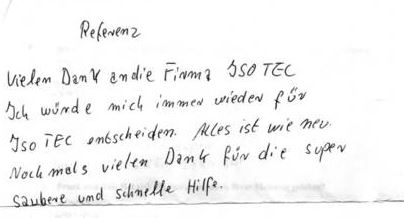 Referenz
Vielen Dank an die Firma ISOTEC
Ich würde mich immer wieder für
IsoTEC entscheiden. Alles ist wie neu.
Nochmals vielen Dank für die super
saubere und schnelle Hilfe.